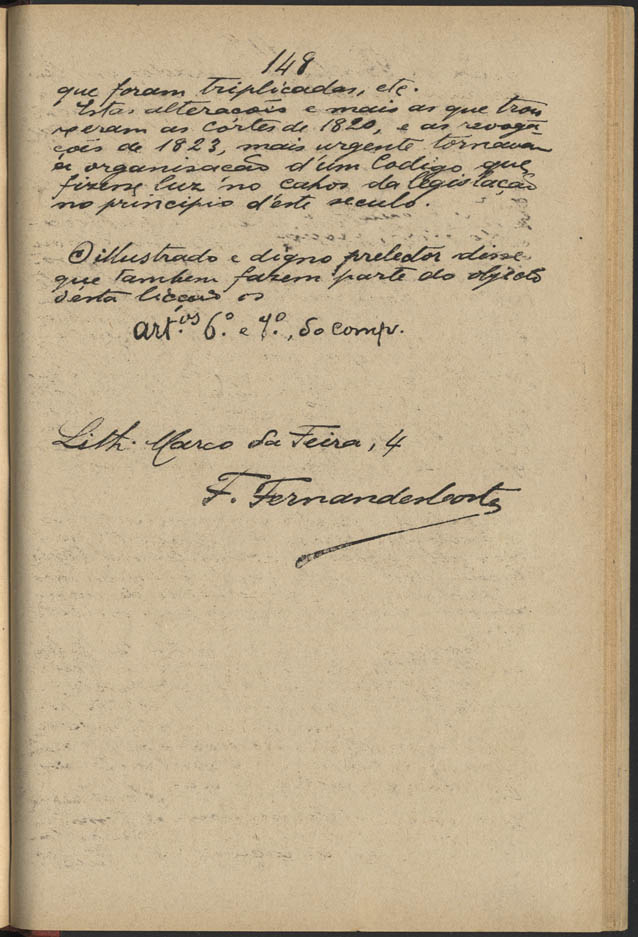 148
que foram triplicadas, etc.
Estas alterações e mais as que trou
xeram as côrtes de 1820, e as revoga
ções de 1823, mais urgente tornavam
a organisação d'um Codigo que
fizesse luz no cahos da legislação
no principio d'este seculo.
O illustrado e digno prelector disse
que tambem fazem parte do objecto
desta licção os
art.ºs 6.º e 7.º, do comp.
Lith. Marco da Feira, 4
F. Fernandes Costa